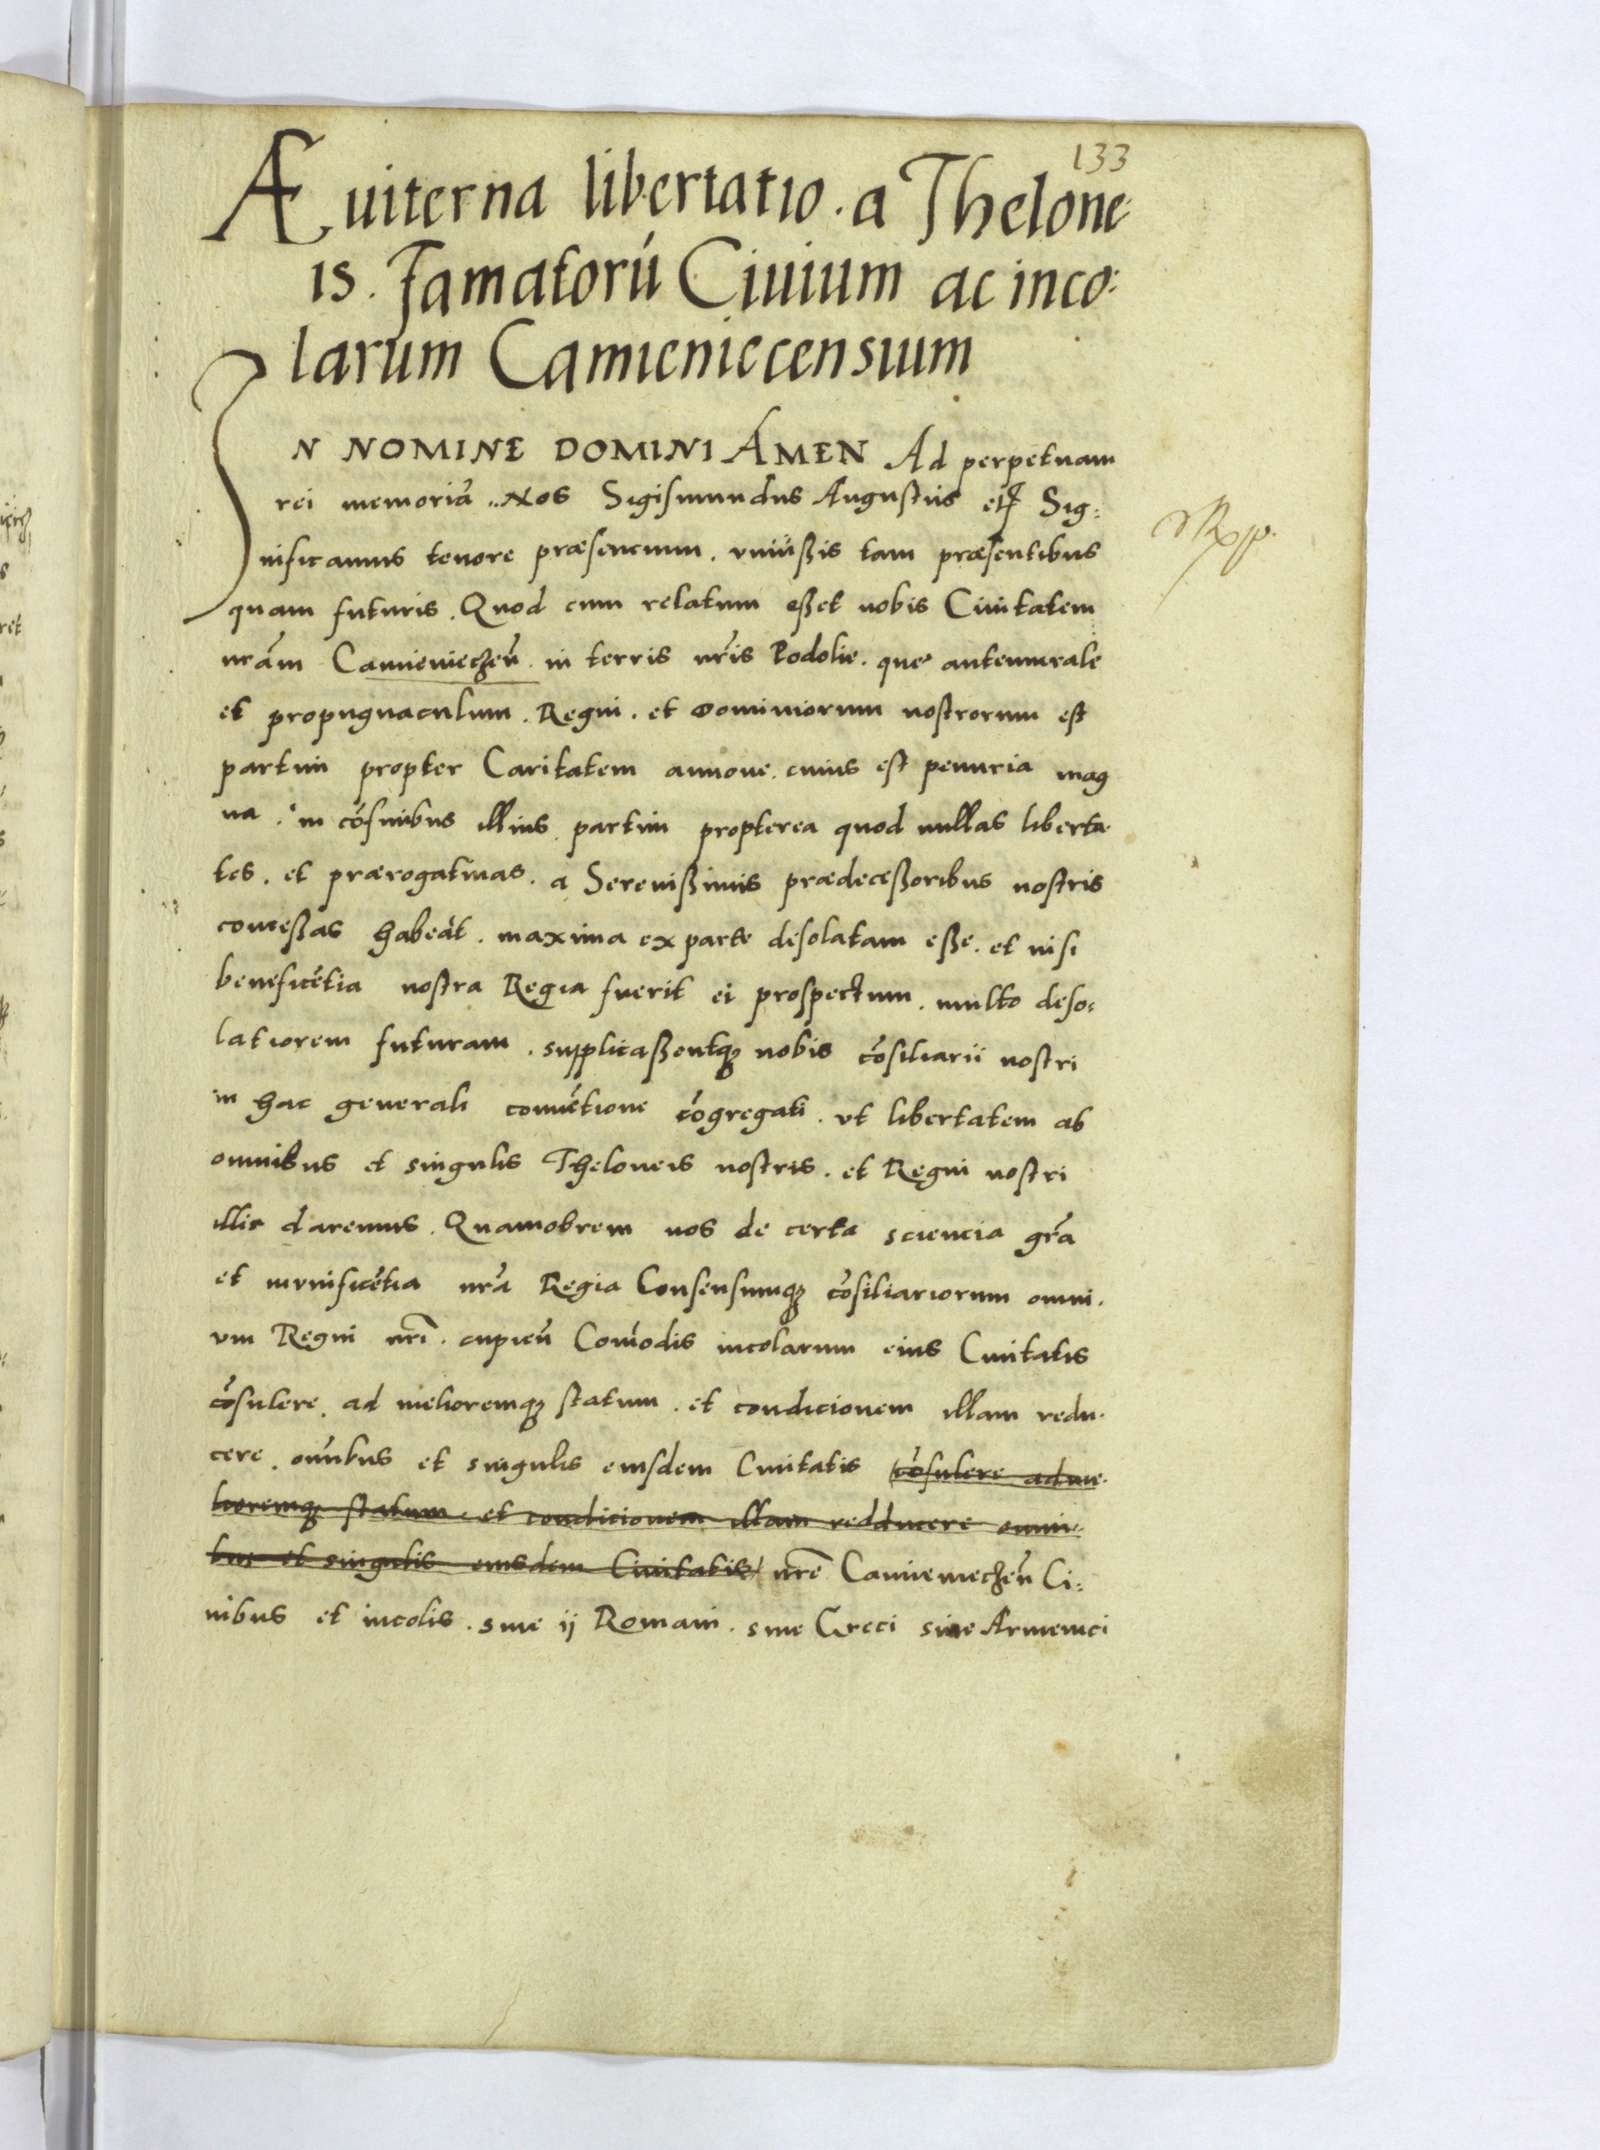 133
Æuiterna libertatio . a Thelone
is . Famatorũ Ciuium ac inco:
larum Camieniecensium
IN NOMINE DOMINI AMEN Ad perpetuam
rei memoriã .. Nos Sigismundus Augustus etc Sig:
nificamus tenore præsencium . vniũßis tam præsentibus
quam futuris . Quod cum relatum eßet nobis Ciuitatem
nrãm Camieniecžeñ . in terris nr̃is Podolie . que antemurale
et propugnaculum . Regni . et Dominiorum nostrorum est
partim propter Caritatem annone . cuius est penuria mag
na . in cõfinibus illius partim propterea quod nullas liberta
tes . et prærogatiuas . a Serenißimis prædeceßoribus nostris
conceßas habeãt . maxima ex parte desolatam eße . et nisi
beneficẽtia nostra Regia fuerit ei prospectum . multo deso:
latiorem futuram . supplicaßentqȝ nobis cõsiliarii nostri
in hac generali conuẽtione cõgregati . vt libertatem ab
omnibus et singulis Theloneis nostris . et Regni nostri
illis daremus . Quamobrem nos de certa sciencia grã
et munificẽtia nrã Regia Consensumqȝ cõsiliariorum omni .
vm Regni nrĩ . cupieñ Com̃odis incolarum eius Ciuitatis
cõsulere . ad melioremqȝ statum . et condicionem illam redu .
cere . om̃ibus et singulis eiusdem Ciuitatis cõsulere ad me .
lioremqȝ statum . et condicionem illam redducere omni .
bus et singulis eiusdem Ciuitatis nrẽ Camieniecžeñ Ci:
uibus et incolis . siue ij Romani . siue Greci siue Armenici